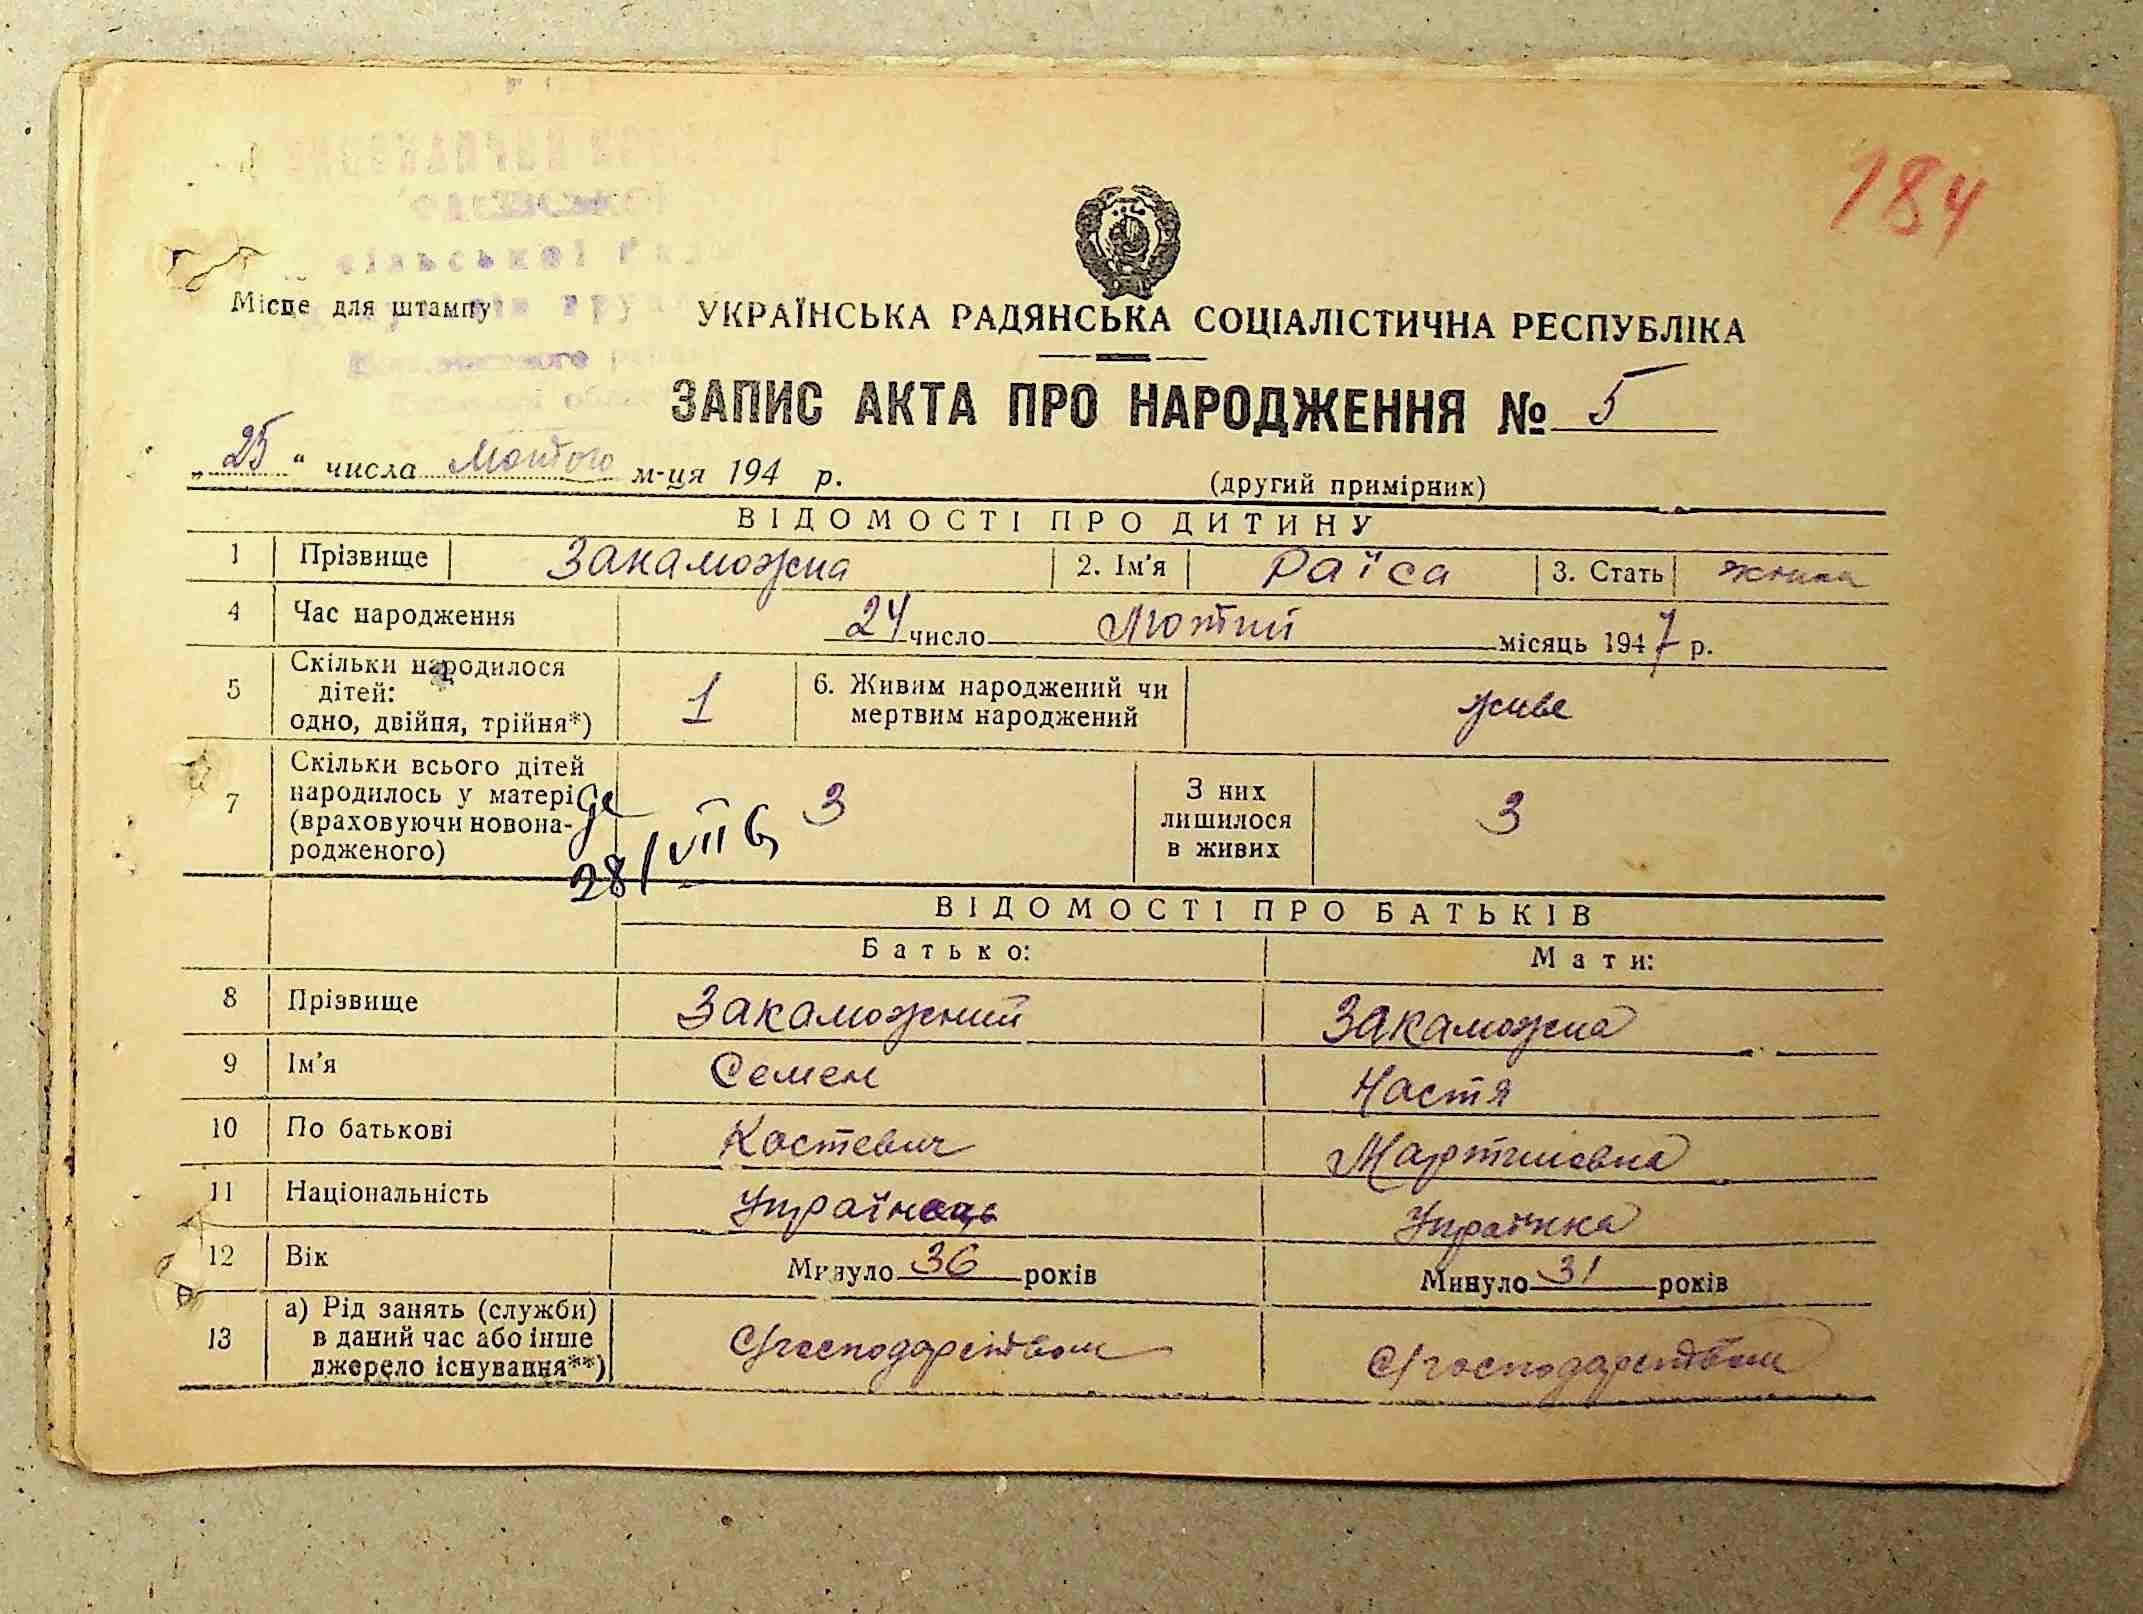 184
сільської
Місце для штампу
УКРАЇНСЬКА РАДЯНСЬКА СОЦІАЛІСТИЧНА РЕСПУБЛІКА
ЗАПИС АКТА ПРО НАРОДЖЕННЯ № 5
„25“ числа лютого м-ця 194 р.
(другий примірник)
ВІДОМОСТІ ПРО ДИТИНУ
1 Прізвище Закаможна 2. Ім'я Раїса 3. Стать
4 Час народження 24 число Лютий місяць 1947 р.
5 Скільки народилося
дітей:
одно, двійня, трійня*) 1
6. Живим народжений чи
мертвим народжений живе
7 Скільки всього дітей
народилось у матері
(враховуючи новона-
родженого) 3
З них
лишилося
в живих 3
28/VII
ВІДОМОСТІ ПРО БАТЬКІВ
Батько: Мати:
8 Прізвище Закаможний Закаможна
9 Ім'я Семен Настя
10 По батькові Костевич Мартинівна
11 Національність Українець Українка
12 Вік Минуло 36 років Минуло 31 років
13 а) Рід занять (служби)
в даний час або інше
джерело існування**) С/господарством С/господарством